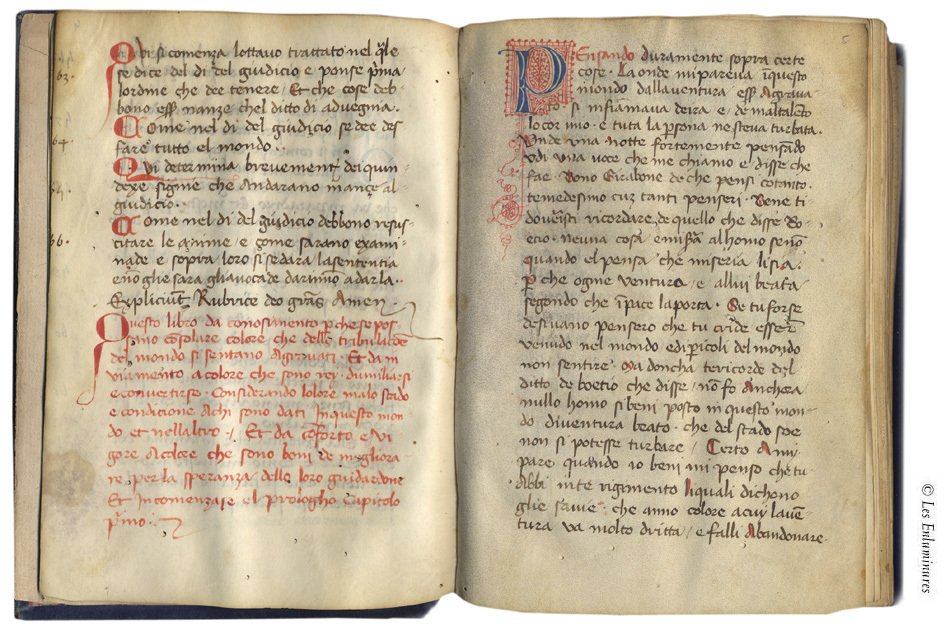 Qvi si comenza lottauo trattato nel q̄le
63.
se dice del di del giudicio e ponse p̄ma
lordine che dee tenere / Et che cose deb-
bono eſſ nanze chel ditto di aduegnia.
64.
Come nel di del giudicio se dee des
fare tutto el mondo.
Qvi determina brevemente dei quin-
65.
dexe signie che Andarano inançe al
giudicio.
Come nel di del giudicio debbono resus-
66.
citare le anime / e come sarano exami-
nade e sopra loro si se dara la sententia
Explicit Rubrice deo gr̄as Amen.
Questo libro da conosimento p̄che se pos
sino consolare colore che delle tribulicione
del mondo si sentano Agravati. Et da in
viamento a colore che sono rey. dumiliarsi
e convertirse. Considerando lolore malo stado
e condicione Achi sono dati Inquesto mon
do et nellaltro ./ Et da conforto e vi
gore Acolore che sono boni de megliora
re per la speranza delle loro guidardone
Et Incomenzase el prologho Capitolo
p̄mo.
5
PEnsando duramente sopra certe
cose. La onde mi pareua ī questo
mondo dallauentura eſſ Agraua
to si infiamaua deira e de maltalēto
lo cor mio. e tuta la ꝑsona ne steua turbata.
Vnde vna notte fortemente pensādo
vdi vna voce che me chiamo e disse che
fae. Bono Girabone de che pensi cotanto.
temedesimo cuz tanti penseri. Bene ti
doueristi ricordare de quello che disse Bo-
etio. Neuna cosa e miſīa al homo se nō
quando el pensa che miseria li sia.
P̄ che ogne ventura / e allui beata
segondo che ī pace la porta. Se tu forse
desi vano pensero che tu crīde esseř
venudo nel mondo e di pericoli del mondo
non sentire. Ma doncha te ricorde del
ditto de boetio che disse / nō fo Anchora
nullo homo si beni posto in questo mon-
do diuentura beato. che del stado soe
non si potesse turbare / Certo Ami
pare quando io beni mi penso che tu
Abbi in te rigimento li quali dichono
glie sauie. che anno colore a cui lauē-
tura va molto dritta / e falli Abandonare
© Les Enluminures